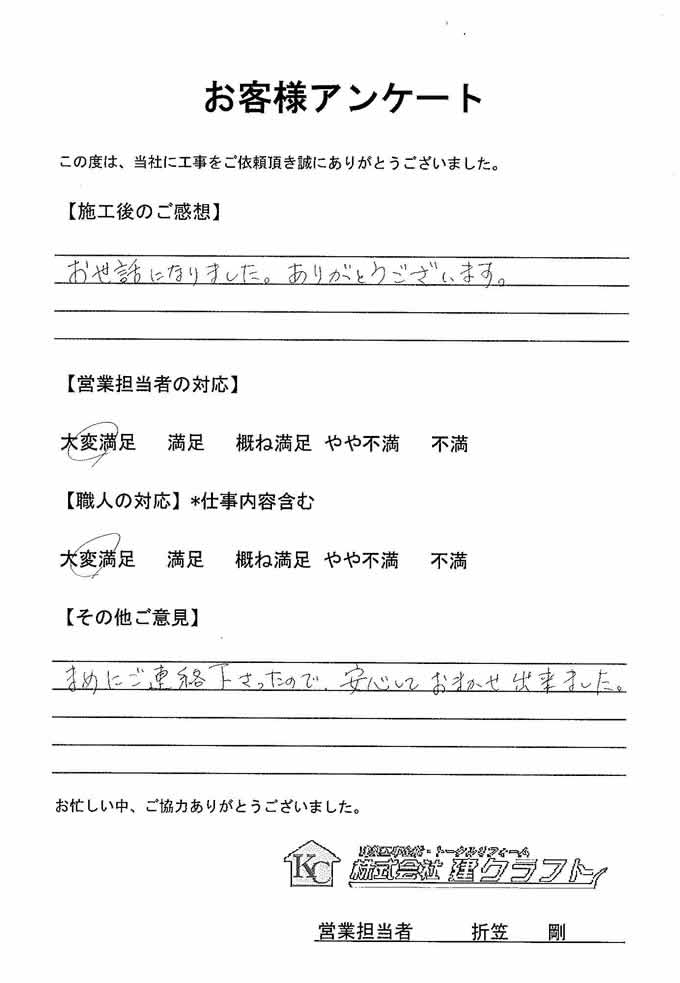 お客様アンケート
この度は、当社に工事をご依頼頂き誠にありがとうございました。
【施工後のご感想】
お世話になりました。ありがとうございます。
【営業担当者の対応】
大変満足 満足 概ね満足 やや不満 不満
【職人の対応】*仕事内容含む
大変満足 満足 概ね満足 やや不満 不満
【その他ご意見】
まめにご連絡下さったので、安心しておまかせ出来ました。
お忙しい中、ご協力ありがとうございました。
KC
・トータルリフォーム
株式会社 建クラフト
営業担当者 折笠 剛